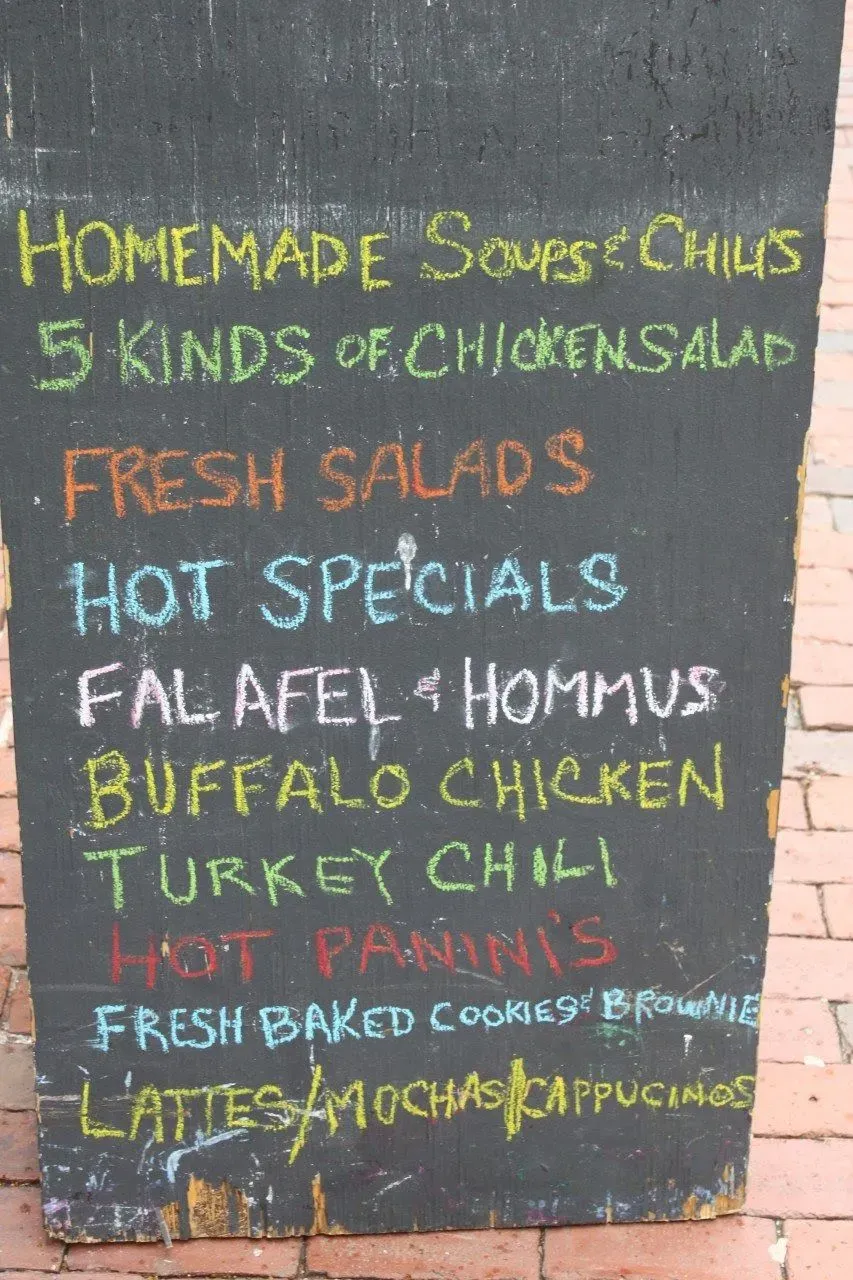 HOMEMADE SOUPS & CHILI'S
5 KINDS OF CHICKEN SALAD
FRESH SALADS
HOT SPECIALS
FALAFEL & HOMMUS
BUFFALO CHICKEN
TURKEY CHILI
HOT PANINI'S
FRESH BAKED COOKIES & BROWNIE
LATTES/MOCHAS/CAPPUCINOS